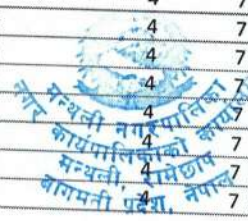 4 7
4 7
4 7
4 7
4 7
मन्थली नगरपालिका
नगर कार्यपालिकाको कार्यालय
4 7
मन्थली, रामेछाप
4 7
बागमती प्रदेश, नेपाल
4 7